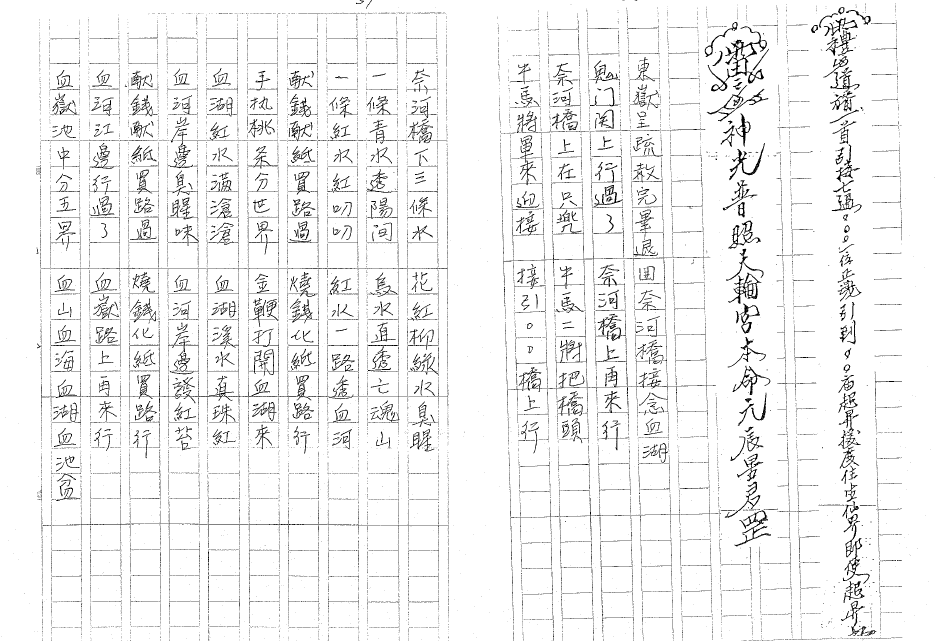 道旨一首引接七過○○一位正魂引到○○府起昇接度往生仙界即使起昇
神光普照天輪宮本命元辰星君罡
東嶽呈疏赦完畢退 回奈河橋接念血湖
鬼门関上行過了 奈河橋上再來行
奈河橋上在只兜 牛馬二將把橋頭
牛馬將軍來迎接 接引○○橋上行
奈河橋下三條水 花紅柳綠水臭腥
一條青水透陽间 烏水直透亡魂山
一條紅水紅叨叨 紅水一路透血河
献錢献紙買路過 燒錢化紙買路行
手执桃条分世界 金鞭打開血湖來
血湖紅水滿滄滄 血湖溪水真珠紅
血河岸邊臭腥味 血河岸邊護紅苔
献錢献紙買路過 燒錢化紙買路行
血河江邊行過了 血嶽路上再來行
血嶽池中分五界 血山血海血湖血池盆